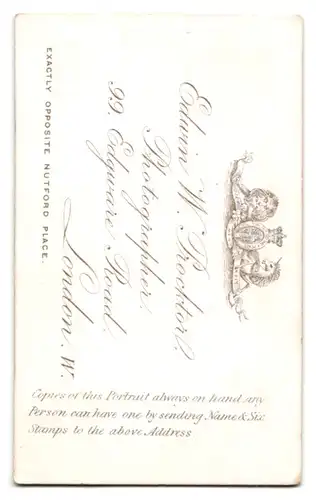 Edwin W. Prockter
Photographer
99. Edgware Road.
London. W.
EXACTLY OPPOSITE NUTFORD PLACE.
Copies of this Portrait always on hand any
Person can have one by sending Name & Six
Stamps to the above Address